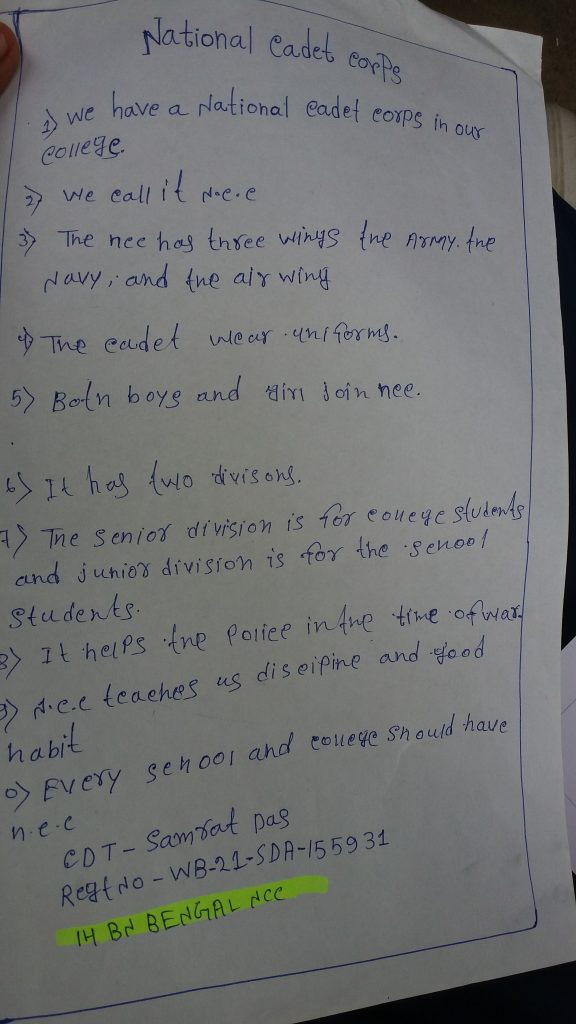 National Cadet Corps
1) We have a National Cadet Corps in our
College.
2) We call it N.C.C
3) The ncc has three wings the Army. the
Navy, and the air wing
4) The cadet wear uniforms.
5) Both boys and girl join ncc.
6) It has two divisons.
7) The senior division is for college students
and junior division is for the school
students.
8) It helps the police in the time of war.
9) N.C.C teaches us discipine and good
habit
0) Every school and college should have
n.c.c
CDT - Samrat Das
Regt No - WB-21-SDA-155931
1H BN BENGAL NCC